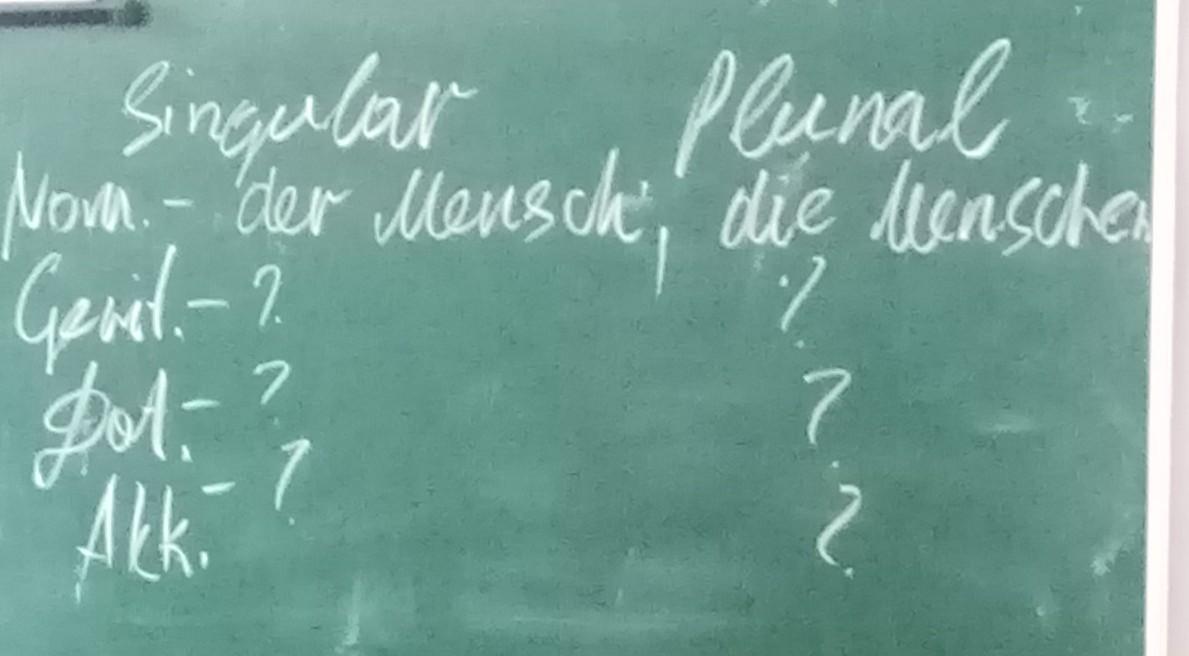 Singular Plural
Nom. - der Mensch, die Menschen
Genit. - ? ?
Dat. - ? ?
Akk. - ? ?